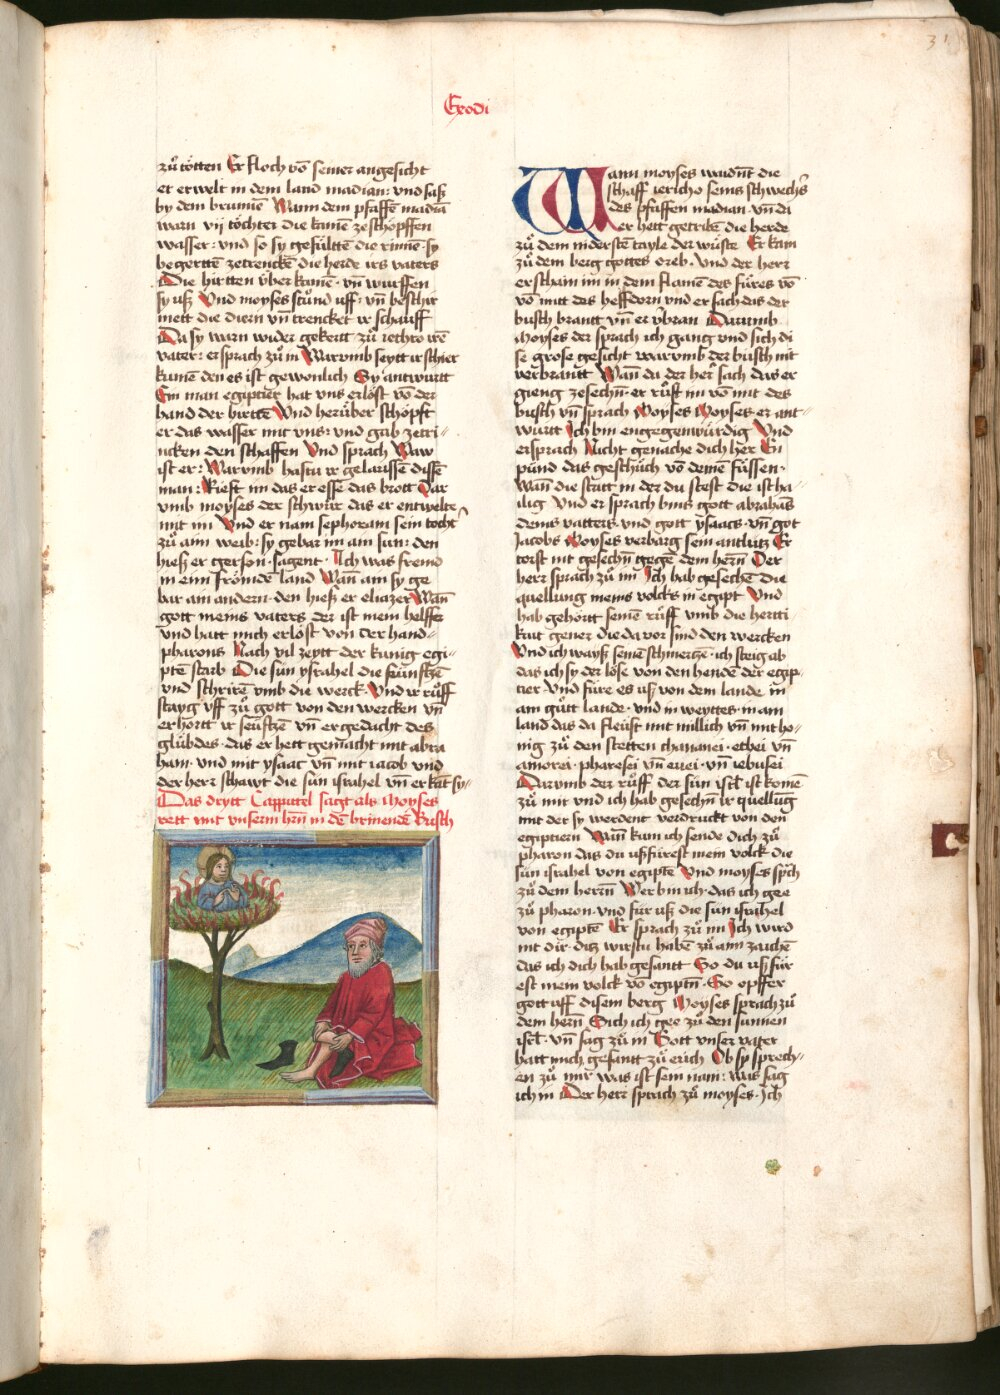 31
Exodi
zů tötten Er floch vō seiner angesicht
er erwelt in dem land madian: vnd saß
by dem brunnē Wann dem pfaffē madiā
warn vij töchter die kamē ze schöpffen
wasser: vnd so sy gefülttē die rinnē sy
begerttē zetrenckē die herde irs vaters
Die hirtten über kamē vn̄ wurffen
sy uß Vnd moyses stůnd uff: vn̄ beschir
mett die diern vn̄ trencket ir schauff
Da sy warn wider gekertt zů iethro irē
vater: er sprach zů in Warvmb seytt ir schier
kumē den es ist gewonlich Sy antwurtt
Ein man egiptier hat vns erlöst vō der
hand der hirttē Vnd herüber schöpft
er das wasser mit vns: vnd gab ze tri〃
ncken den schaffen Vnd sprach Waw
ist er: Warvmb hasta ir gelaussē dissē
man: Rieft im das er esse das brott Dar
vmb moyses der schwůr das er entwelte
mit im Vnd er nam sephoram sein tocht̾
zů aim weib: sy gebar im ain sun: den
hieß er gerson · sagent · Ich was fremd
in einn frömden land Wan̄ ain sy ge
bar ain andern · den hieß er eliazer Wan̄
gott meins vaters der ist mein helffer
vnd hatt mich erlöst von der hand〃
pharons Nach vil zeytt der kunig egi〃
ptē starb Die sün ysrahel die seünfftzē
vnd schrirē vmb die werck · Vnd ir růff
stayg vff zů gott von den wercken vn̄
er hortt ir seüftzē vn̄ er gedacht des
glübdes · das er hett gemacht mit abra
ham · vnd mit ysaac vn̄ mit iacob vnd
der herr schawt die sün israhel vn̄ erkāt sy〃
Das drytt Cappittel sagt als Moyses
rett mit vnserm hrn̄ in dē brinendē Busch
Wann moyses waidn̄t die
schaff iericho seins schwech̾s
des pfaffen madian · vn̄ da
er hett getribē die herde
zů dem niderstē tayle der wüste Er kam
zů dem berg gottes oreb · Vnd der herr
erschain im in dem flamē des füres vō
vō mitt des heffdorn vnd er sach das der
busch brantt vn̄ er vbran Darumb
Moyses der sprach ich gang vnd sich di
se grose gesicht warvmb der busch nit
verbrantt Wan̄ da der her̄ sach das er
gieng ze sechn̄ · er růft im vō mit des
busch vn̄ sprach Moyses Moyses · er ant〃
wurtt Ich bin engegenwürdig Vnd
er sprach Nicht genache dich her En
pünd das geschůch vō deinē füssen ·
wan̄ die statt in der du stest die ist ha〃
ilig Vnd er sprach bins gott abrahās
deins vatters · vnd gott ysaacs · vn̄ got
Jacobs Moyses verbarg sein antlütz Er
torst nit gesechn̄ gegē dem hern̄ Der
herr sprach zů im Ich hab gesechē die
quellung meins volcks in egipt Vnd
hab gehörtt seinē růff vmb die hertti〃
kait gener die da vor sind den wercken
Vnd ich wayß seinē schmerczē · ich steig ab
das ich sy der löse von den hendē der egip〃
tier Vnd füre es uß von dem lande in
ain gütt lande · vnd in weyttes · in ain
land das da fleüst mit millich vn̄ mit ho〃
nig zů den stetten chananei · ethei vn̄
amorei · pharesei vn̄ euei · vn̄ iebusei
Darvmb der růff der sün isrl̄ ist komē
zů mir vnd ich hab gesechn̄ ir quellūg
mit der sy werdent verdruckt von den
egiptiern Wan̄ kum ich sende dich zů
pharon das du ußfürest mein volck die
sün israhel von egiptē Vnd moyses sp̄ch
zů dem herrn̄ Wer bin ich · das ich gee
zů pharon · vnd für uß die sün israhel
von egiptē Er sprach zů im Ich wird
mit dir · diz wirstu habē zů aim zaichē
das ich dich hab gesantt So du uß für
est mein volck vō egiptn̄ · So opffer
gott uff disem berg Moyses sprach zů
dem hern̄ Sich ich gee zů den sunnen
isrl̄ · vn̄ sag zů in Gott vnser vater
hatt mich gesantt zů eüch Ob sy sprech〃
en zů mir was ist sein nam: was sag
ich in Der herr sprach zů moyses · Ich